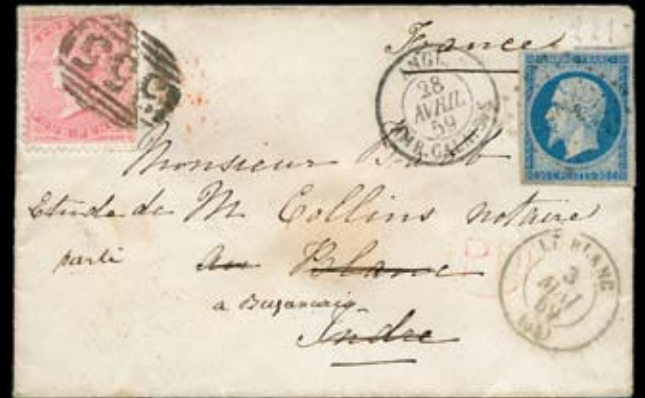 221
France
ANGL.
28
AVRIL
59
AMB. CALAIS
Monsieur
Etude de M Collins notaire
parti au Blanc
a Buzançais
Indre
PD
LE BLANC
3
MAI
59